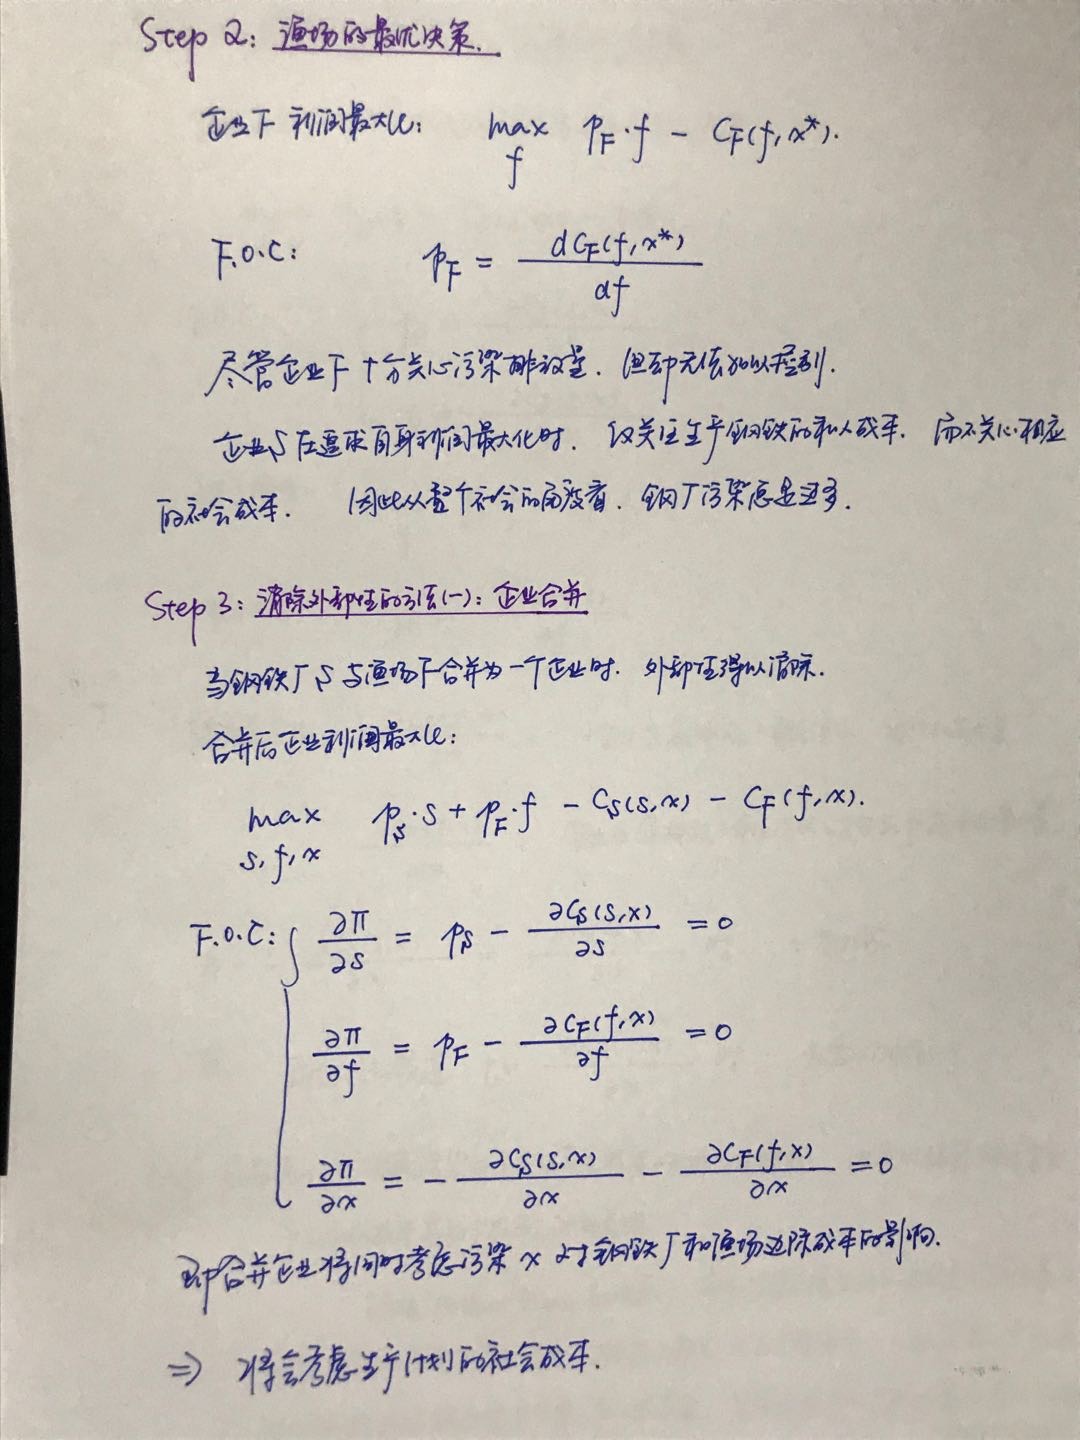 Step 2: 渔场的最优决策.
企业F 利润最大化: max p_F·f - C_F(f,x*).
f
F.O.C: p_F = dC_F(f,x*) / df
尽管企业F十分关心污染排放量. 但却无法加以控制.
企业S在追求自身利润最大化时. 仅关注生产钢铁的私人成本. 而不关心相应
的社会成本. 因此从整个社会的角度看. 钢厂污染总是过多.
Step 3: 消除外部性的方法(一): 企业合并
当钢铁厂S与渔场F合并为一个企业时. 外部性得以消除.
合并后企业利润最大化:
max p_S·s + p_F·f - C_S(s,x) - C_F(f,x).
s,f,x
F.O.C: ∂π/∂s = p_S - ∂C_S(s,x)/∂s = 0
∂π/∂f = p_F - ∂C_F(f,x)/∂f = 0
∂π/∂x = - ∂C_S(s,x)/∂x - ∂C_F(f,x)/∂x = 0
即合并企业将同时考虑污染x对钢铁厂和渔场边际成本的影响.
⇒ 将会考虑生产计划的社会成本.